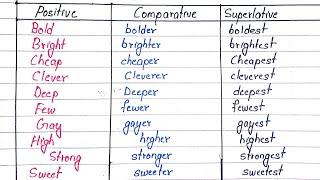 Positive Comparative Superlative
Bold bolder boldest
Bright brighter brightest
Cheap cheaper Cheapest
Clever Cleverer cleverest
Deep Deeper deepest
Few fewer fewest
Gray gayer gayest
High higher highest
Strong stronger strongest
Sweet sweeter sweetest